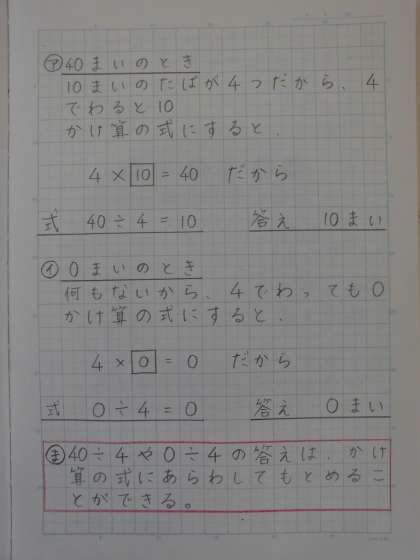 ㋐40まいのとき
10まいのたばが4つだから、4
でわると10
かけ算の式にすると、
4×10=40 だから
式 40÷4=10 答え 10まい
㋑0まいのとき
何もないから、4でわっても0
かけ算の式にすると、
4×0=0 だから
式 0÷4=0 答え 0まい
㋮40÷4や0÷4の答えは、かけ
算の式にあらわしてもとめるこ
とができる。